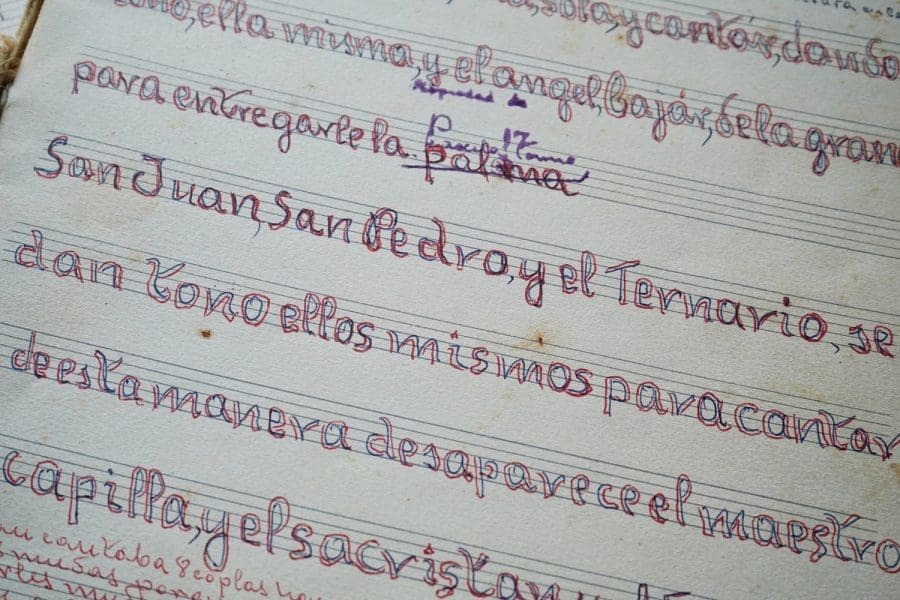 sola, y cantár, dando
tono, ella misma, y el angel, bajár, de la gran
para entregarle la palma
San Juan, San Pedro, y el Ternario, se
dan tono ellos mismos para cantar
de esta manera desaparece el maestro
capilla, y el sacristan
cantaba 8 coplas